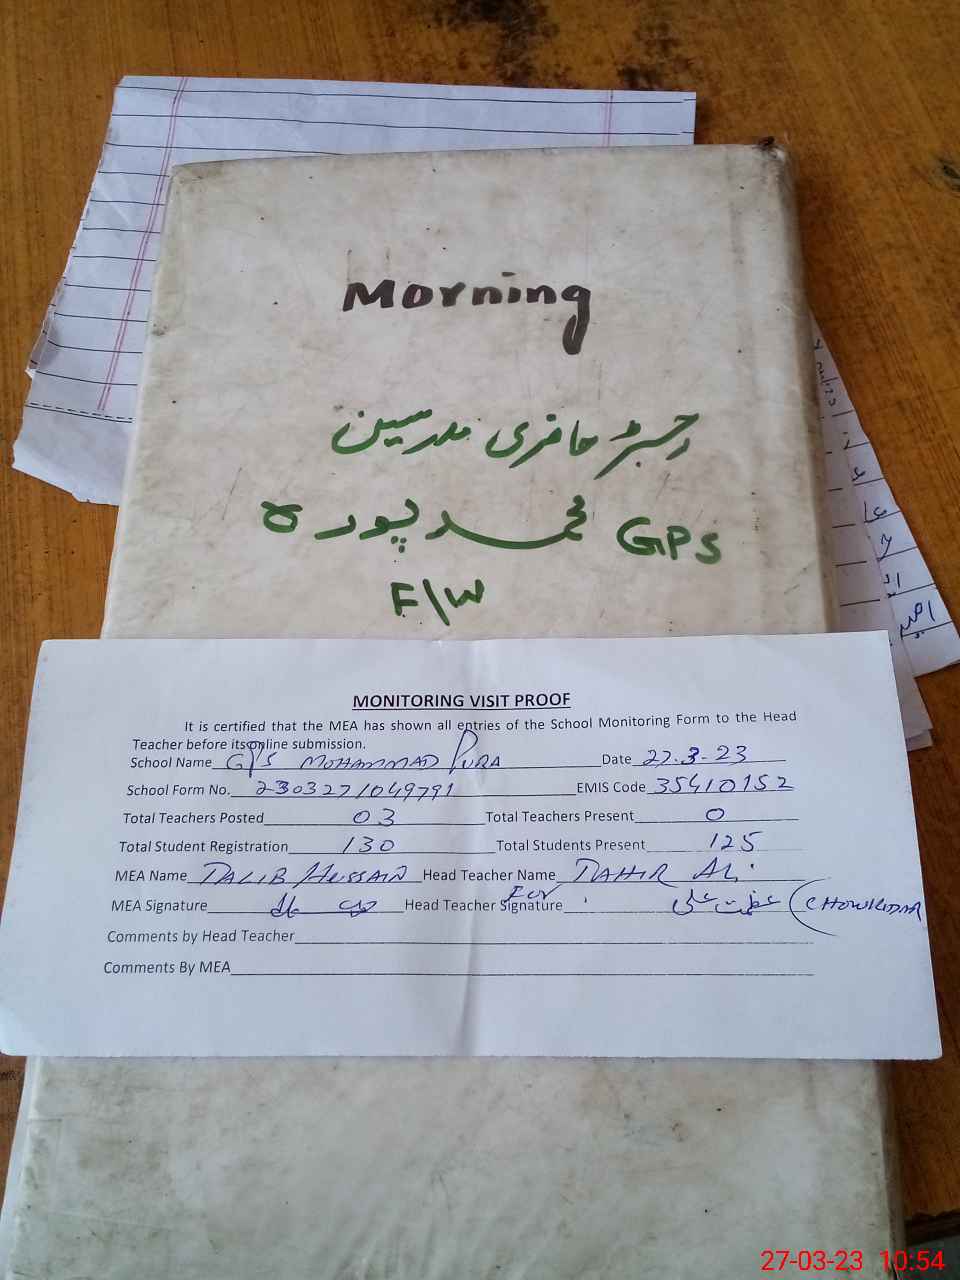 Morning
رجسٹر حاضری مدرسین
GPS محمد پورہ
F/W
MONITORING VISIT PROOF
It is certified that the MEA has shown all entries of the School Monitoring Form to the Head
Teacher before its online submission.
School Name GPS MOHAMMAD PURA Date 27.3-23
School Form No. 2303271049791 EMIS Code 35410152
Total Teachers Posted 03 Total Teachers Present 0
Total Student Registration 130 Total Students Present 125
MEA Name TALIB HUSSAIN Head Teacher Name TAHIR Ali
MEA Signature Head Teacher Signature For عظمت علی (CHOWKIDAR
Comments by Head Teacher
Comments By MEA
27-03-23 10:54